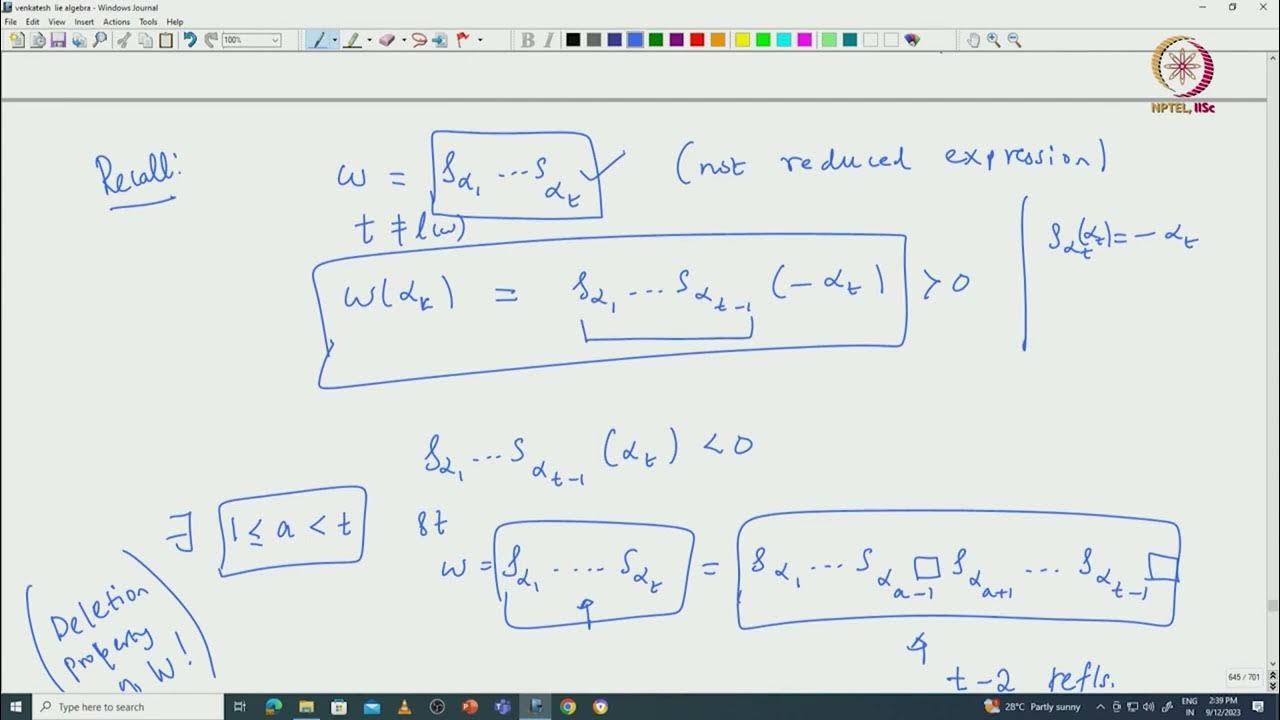 venkatesh lie algebra - Windows Journal
File Edit View Insert Actions Tools Help
100%
B I
NPTEL, IISc
Recall: w = S_{α_1} ... S_{α_t} ✓ (not reduced expression)
t ≠ l(w)
w(α_t) = S_{α_1} ... S_{α_{t-1}} (-α_t) > 0
S_{α_t}(α_t) = -α_t
S_{α_1} ... S_{α_{t-1}} (α_t) < 0
∃ 1 ≤ a < t st
w = S_{α_1} ..... S_{α_t} = S_{α_1} ... S_{α_{a-1}} □ S_{α_{a+1}} ... S_{α_{t-1}} □
(Deletion
property
in W!
t-2 refls.
645 / 701
Type here to search
28°C Partly sunny
ENG
IN
2:39 PM
9/12/2023